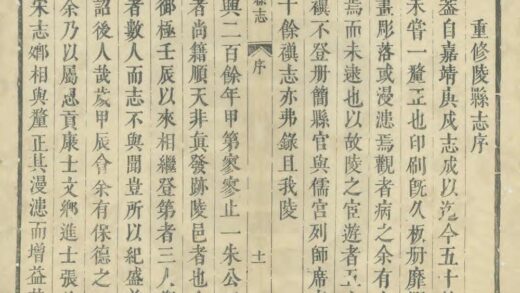 重修陵縣志序
葢自嘉靖庚戌志成以迄今五十
未嘗一釐正也印刷旣久板册靡
畫彫落或漫漶焉觀者病之余有
焉而未逮也以故陵之宦遊者五
禩不登册簡縣官與儒官列師席
十餘禩志亦弗錄且我陵
縣志
序
十一
興二百餘年甲第寥寥止一朱公
者尚籍順天非眞發跡陵邑者也
御極壬辰以來相繼登第者三人
者數人而志不與聞豈所以紀盛
詔後人哉歲甲辰會余有保德之
余乃以屬恩貢康士文鄉進士張
宋志鄉相與釐正其漫漶而增益